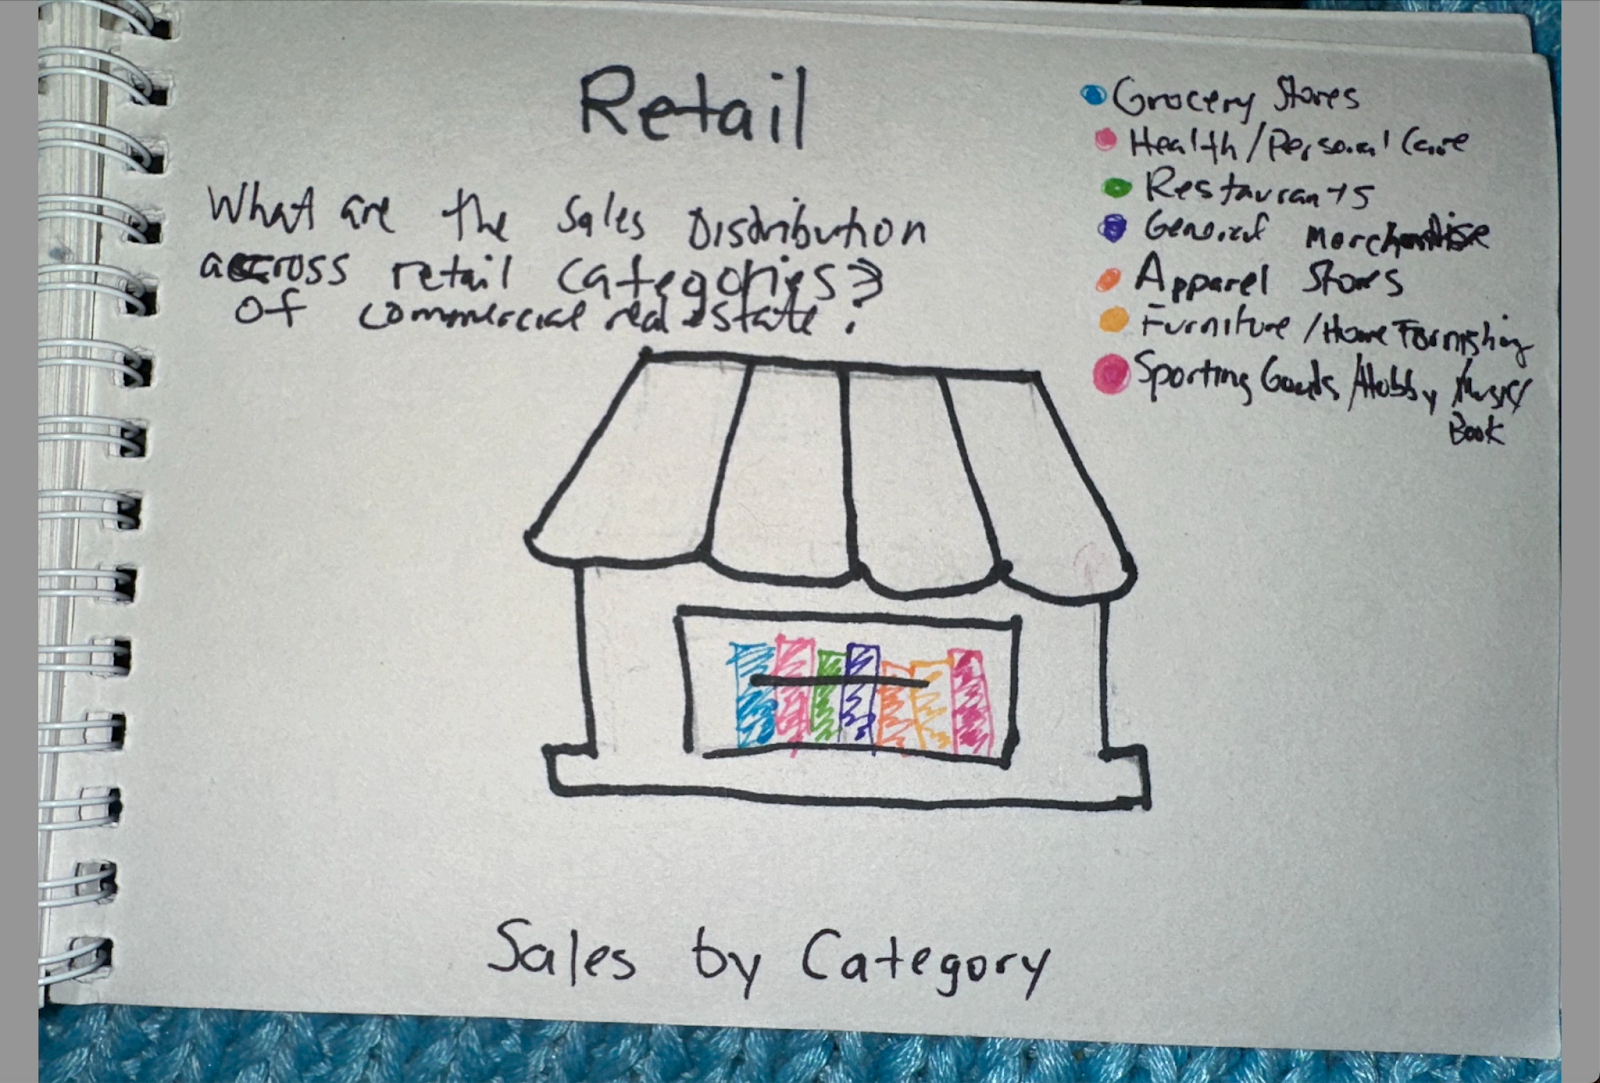 Retail
What are the Sales Distribution
across retail categories?
of commercial real estate?
Grocery Stores
Health/Personal Care
Restaurants
General Merchandise
Apparel Stores
Furniture/Home Furnishing
Sporting Goods/Hobby/Music/
Book
Sales by Category